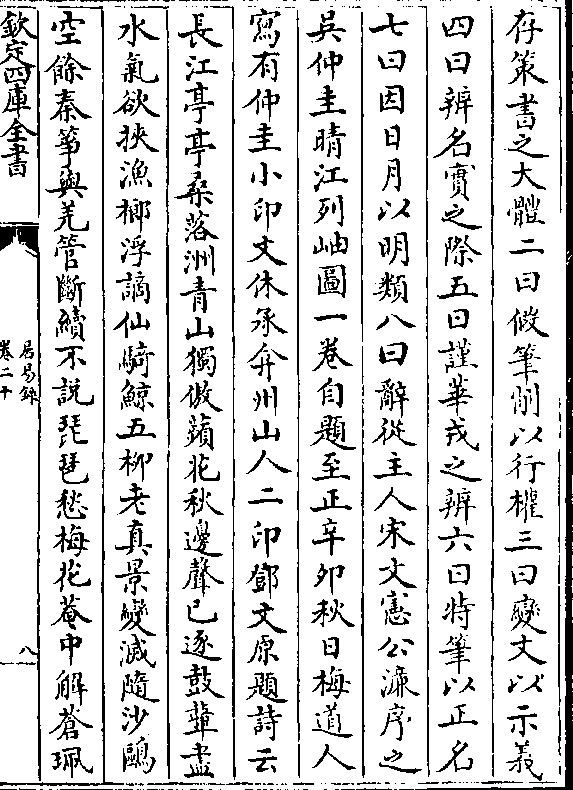 存策書之大體二曰假筆削以行權三曰變文以示義
四曰辨名實之際五曰謹華戎之辨六曰特筆以正名
七曰因日月以明類八曰辭從主人宋文憲公濂序之
吳仲圭晴江列岫圖一卷自題至正辛卯秋日梅道人
寫有仲圭小印文休承弇州山人二印鄧文原題詩云
長江亭亭桑落洲青山獨倣蘋花秋邊聲已逐鼓鼙盡
水氣欲挾漁榔浮謫仙騎鯨五柳老真景變滅隨沙鷗
空餘秦箏與羌管斷續不說琵琶愁梅花菴中解蒼珮
欽定四庫全書
居易錄
卷二十
八